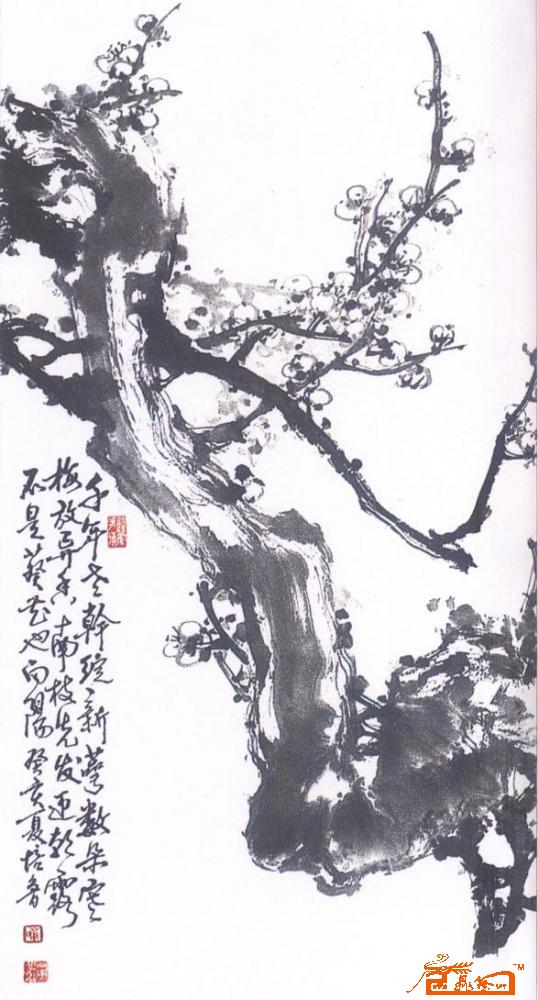 千年老干绽新萼数朵寒
梅放异香南枝先发迎朝霞
不是葵花也向阳癸亥夏培鲁